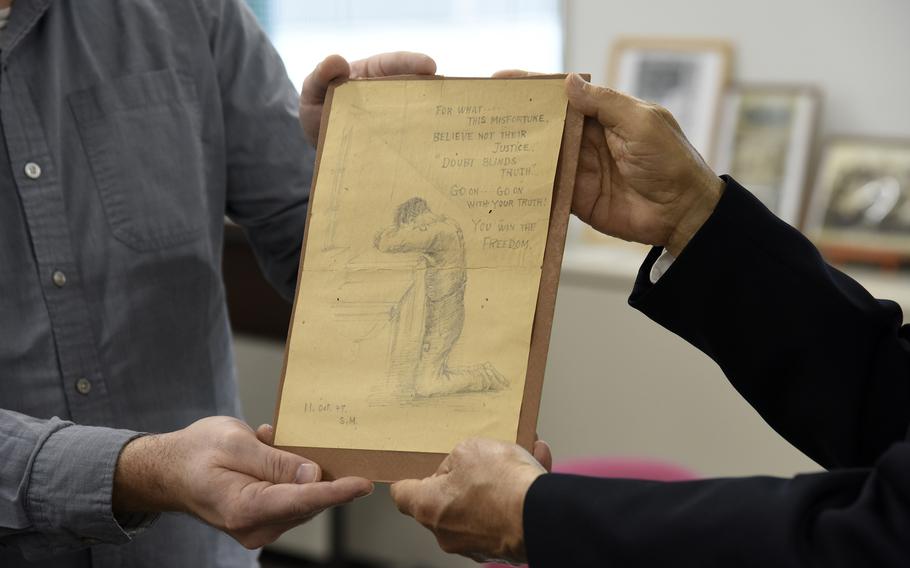 FOR WHAT.....
THIS MISFORTUKE,
BELIEVE NOT THEIR
JUSTICE..
"DOUBT BLINDS
TRUTH."
GO ON-- GO ON
WITH YOUR TRUTH!
YOU WIN THE
FREEDOM.
11. Oct. 47.
S.M.